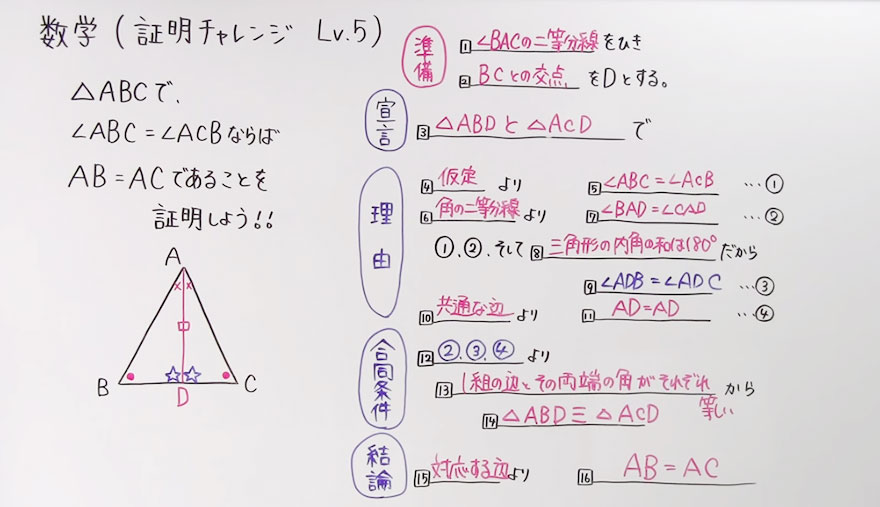 数学（証明チャレンジ Lv.5）
△ABCで、
∠ABC=∠ACBならば
AB=ACであることを
証明しよう!!
A
× ×
B
C
D
準備
1 ∠BACの二等分線をひき
2 BCとの交点 をDとする。
宣言
3 △ABDと△ACD で
理由
4 仮定 より 5 ∠ABC=∠ACB …①
6 角の二等分線より 7 ∠BAD=∠CAD …②
①、②、そして 8 三角形の内角の和は180°だから
9 ∠ADB=∠ADC …③
10 共通な辺 より 11 AD=AD …④
合同条件
12 ②、③、④ より
13 1組の辺とその両端の角がそれぞれ から
等しい
14 △ABD≡△ACD
結論
15 対応する辺より 16 AB=AC